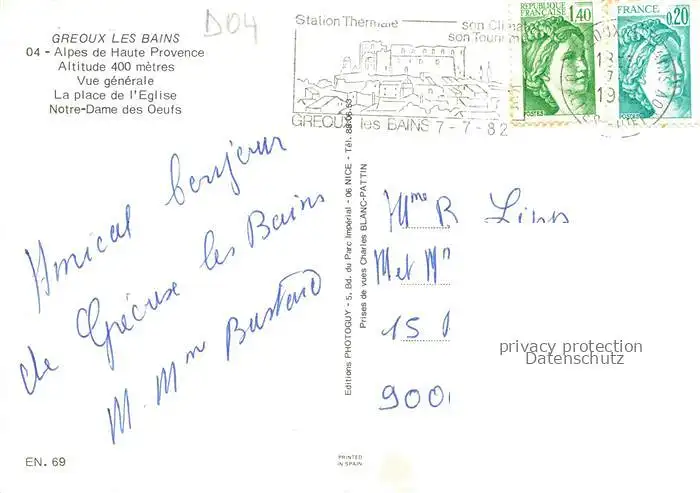 D04
GREOUX LES BAINS
04 - Alpes de Haute Provence
Altitude 400 mètres
Vue générale
La place de l'Eglise
Notre-Dame des Oeufs
Station Thermale
son Climat
son Tourism
GREOUX les BAINS 7-7-82
REPUBLIQUE FRANÇAISE 1,40
POSTES
FRANCE 0,20
POSTES
Amical bonjour
de Gréoux les Bains
M. Mme Bastard
Editions PHOTOGUY - 5, Bd. du Parc Impérial - 06 NICE - Tél. 88.06.63
Prises de vues Charles BLANC-PATTIN
Mme R
Met M
15
900
privacy protection
Datenschutz
EN. 69
PRINTED
IN SPAIN